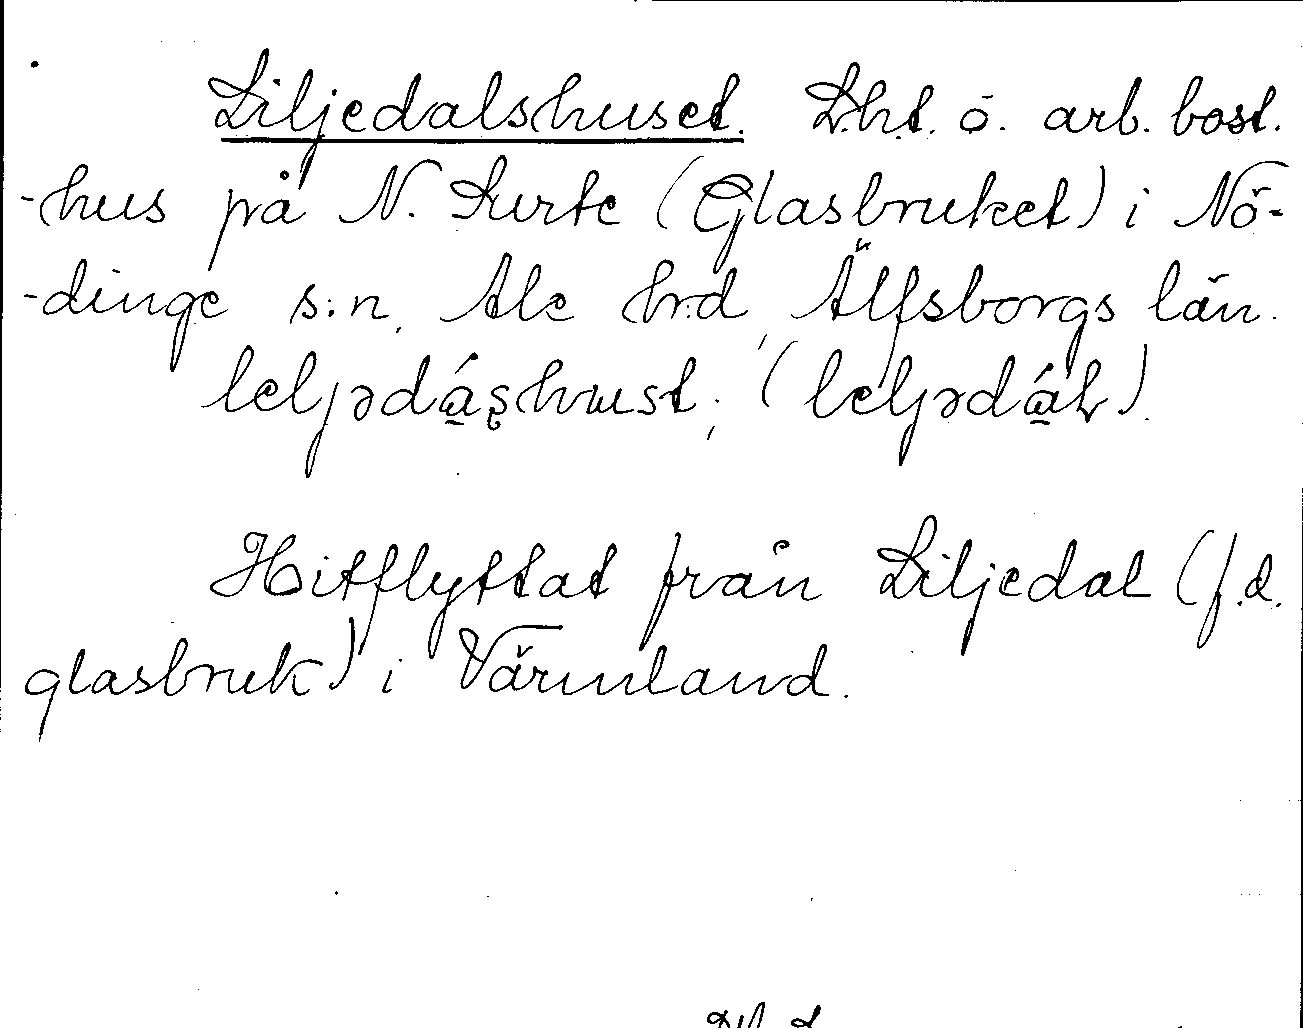 Liljedalshuset. Lht. ö. arb. bost.
-hus på N. Surte (Glasbruket) i Nö-
-dinge s:n, Ale hrd, Älfsborgs län.
leljədáṣhust, (leljədáɫ).
Hitflyttat från Liljedal (f.d.
glasbruk) i Värmland.